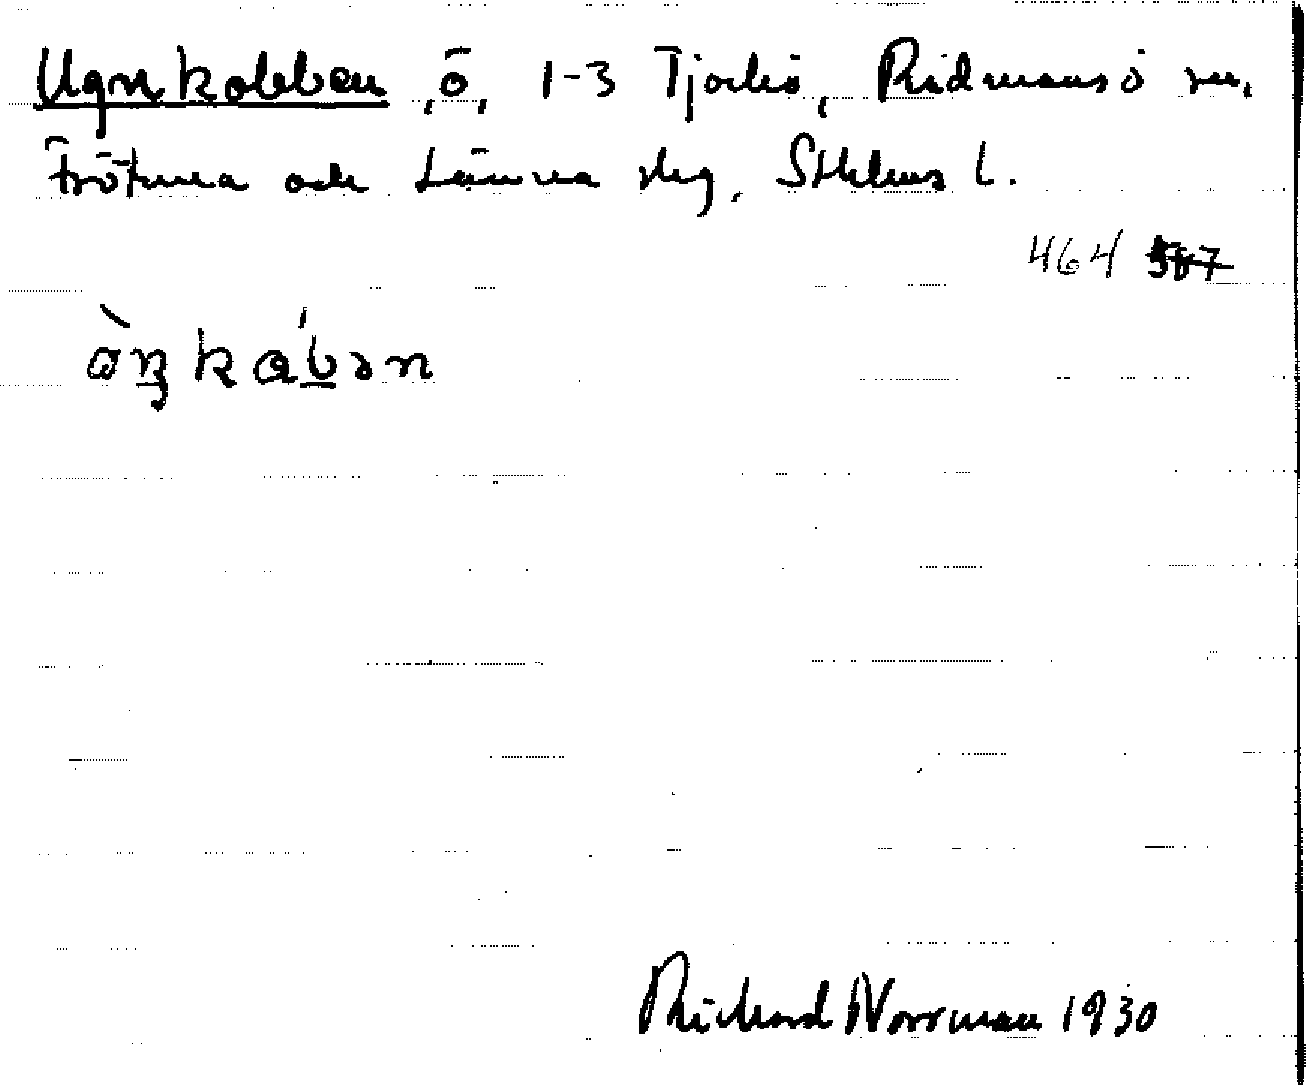 Ugnkobben, ö, 1-3 Tjockö, Rådmansö sn,
Frötuna och Länna skg, Sthlms l.
464 567
Rickard Norrman 1930